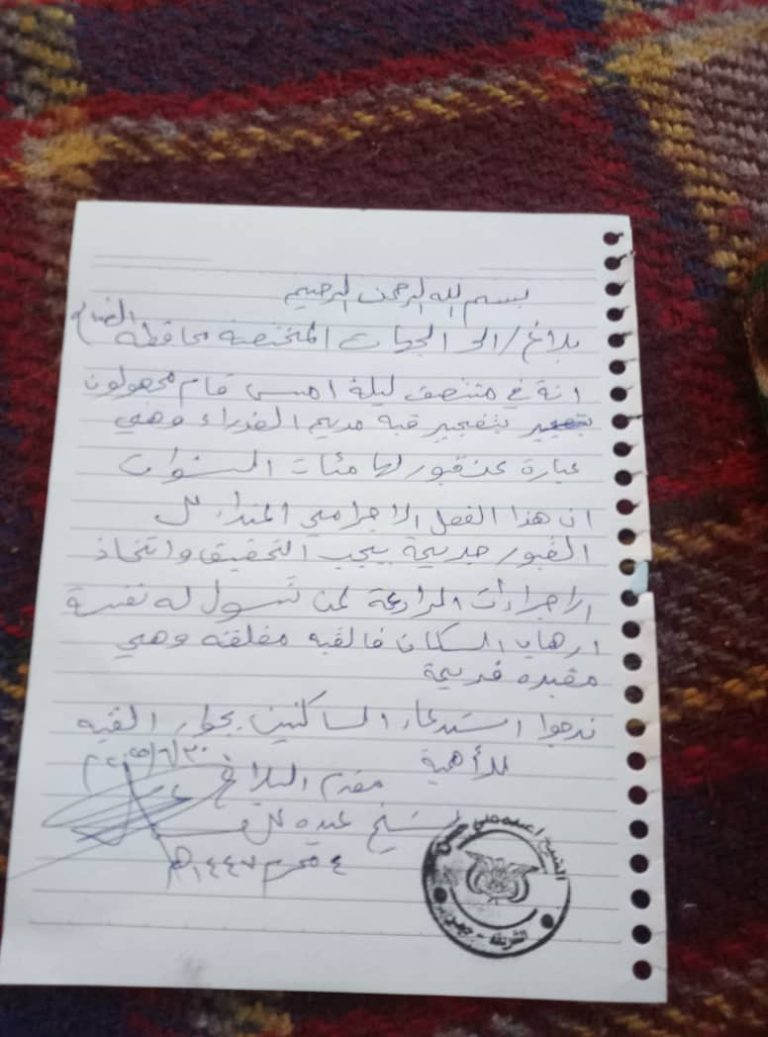 بسم الله الرحمن الرحيم
بلاغ/الى الجهات المختصة محافظة الضالع
انة في منتصف ليلة امس قام مجهولون
بتفجير قبه مريم العذراء وهي
عبارة عن قبور لها مئات السنوات
ان هذا الفعل الاجرامي
القبور جريمة يجب التحقيق واتخاذ
الاجراءات الرادعة لمن تسول له نفسة
ارهاب السكان فالقبه مغلقه وهي
مقبره قديمة
نرجوا استدعاء الساكنين بجوار القبه
للأهمية
٢٠٢٥/٦/٣٠م
مقدم البلاغ
الشيخ عبده علي
٤ محرم ١٤٤٧ه
الشيخ / عبده علي حسن
الشريفه -